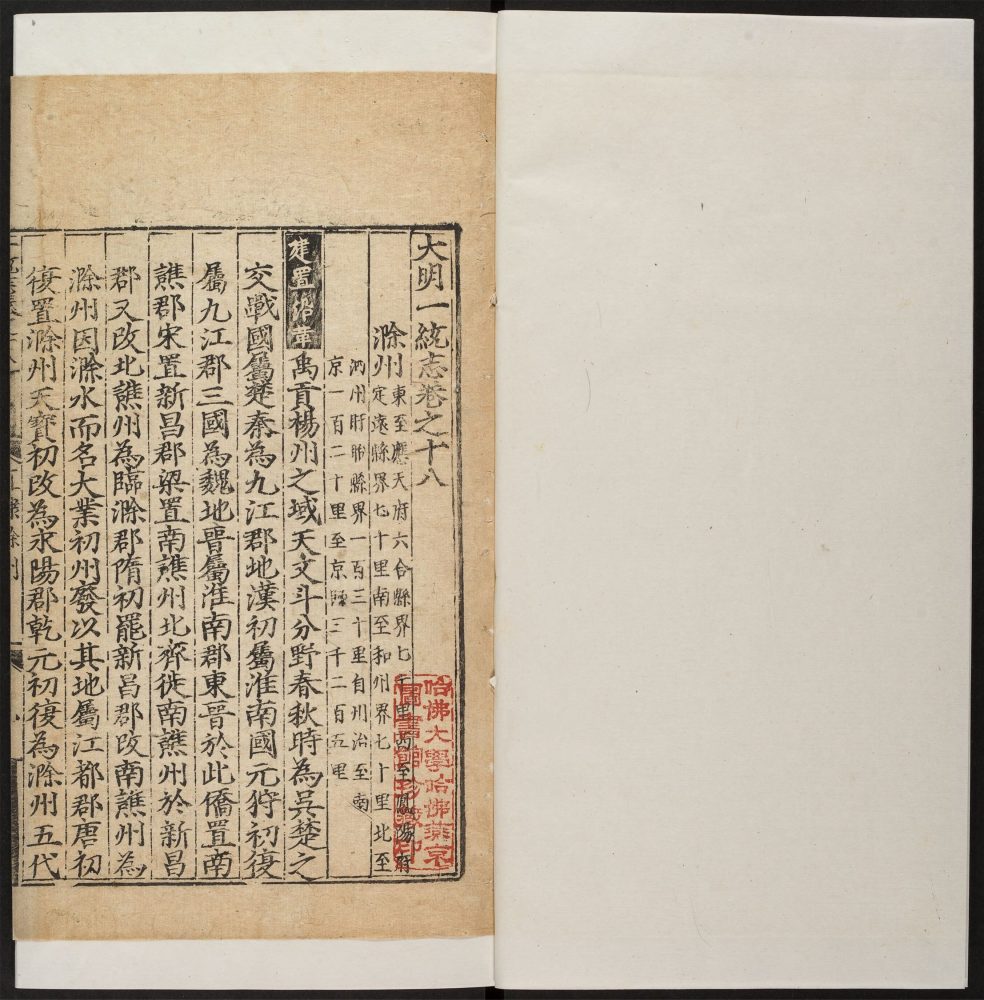 大明一統志卷之十八
滁州東至應天府六合縣界七十里西至鳳陽府
定遠縣界七十里南至和州界七十里北至
泗州盱眙縣界一百三十里自州治至南
京一百二十里至京師三千二百五里
建置沿革禹貢楊州之域天文斗分野春秋時為吳楚之
交戰國屬楚秦為九江郡地漢初屬淮南國元狩初復
屬九江郡三國為魏地晉屬淮南郡東晉於此僑置南
譙郡宋置新昌郡梁置南譙州北齊徙南譙州於新昌
郡又改北譙州為臨滁郡隋初罷新昌郡改南譙州為
滁州因滁水而名大業初州廢以其地屬江都郡唐初
復置滁州天寶初改為永陽郡乾元初復為滁州五代
哈佛大學哈佛燕京
圖書館珍藏印